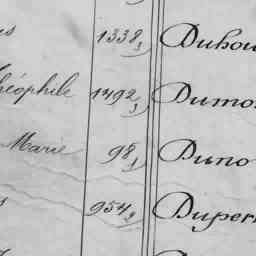 s 1338,1 Duhou
héophile 1492,1 Dumo
Marie 98,1 Duno
s 954,2 Duper